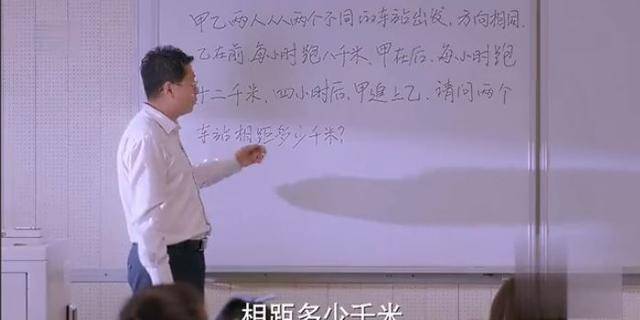 甲乙两人从两个不同的车站出发,方向相同.
乙在前,每小时跑八千米,甲在后,每小时跑
十二千米,四小时后,甲追上乙,请问两个
车站相距多少千米?
相距多少千米